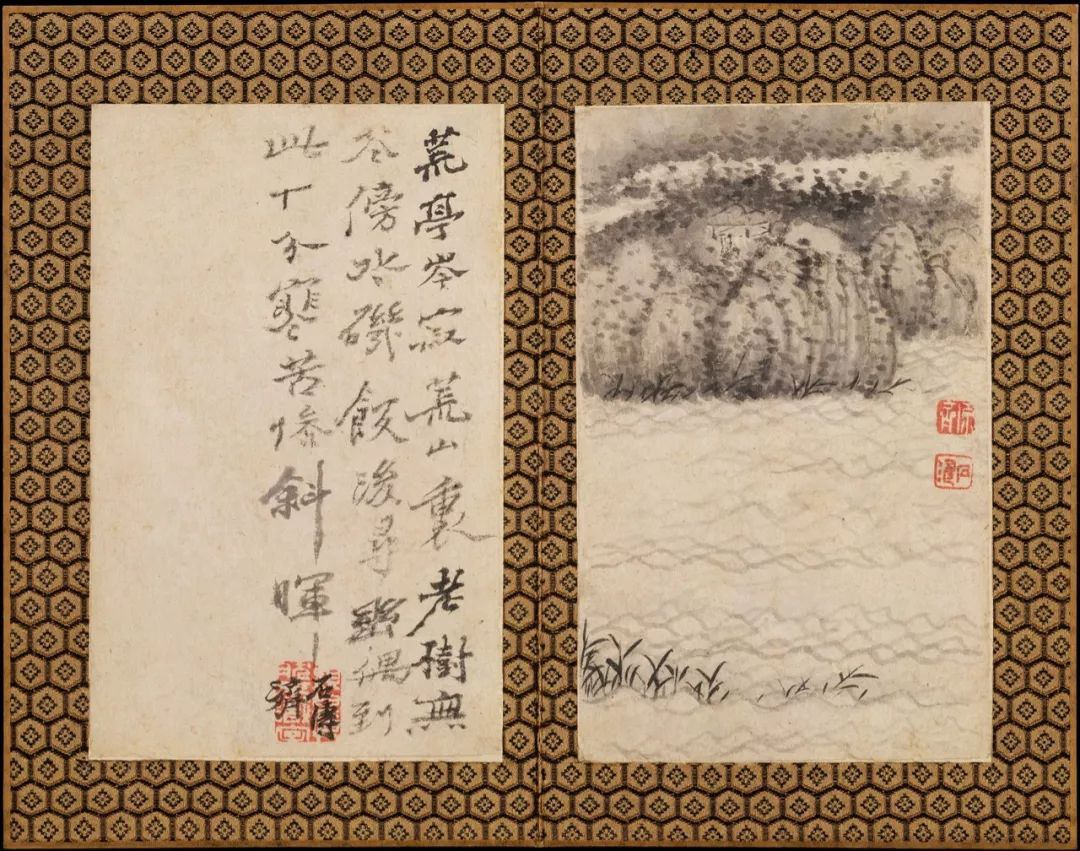 荒亭岑寂荒山裏老樹無
花傍水磯飯後尋幽偶到
此十分寒苦慘斜暉
石濤
濟